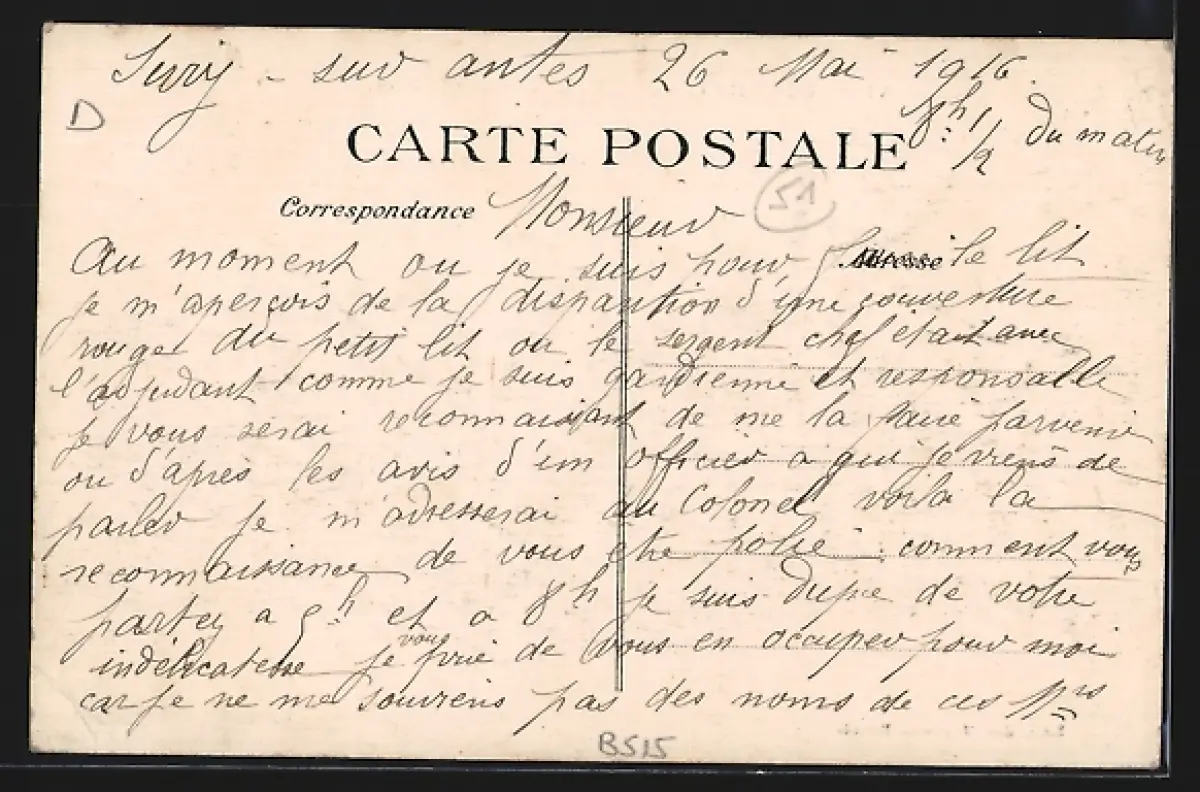 Sivry - sur antes 26 Mai 1916.
8h 1/2 du matin
D
CARTE POSTALE
51
Correspondance
Monsieur
Adresse
Au moment ou je suis pour faire le lit
je m'aperçois de la disparition d'une couverture
rouge du petit lit ou le sergent chef était avec
l'asjudant comme je suis gardienne et responsable
je vous serai reconnaissant de me la faire parvenir
ou d'après les avis d'un officier a qui je viens de
parler je m'adresserai au Colonel voila la
reconnaissance de vous etre polie comment vous
partez a 5h et a 8h je suis dupe de votre
indélicatesse je vous prie de vous en occuper pour moi
car je ne me souviens pas des noms de ces Mrs
B515